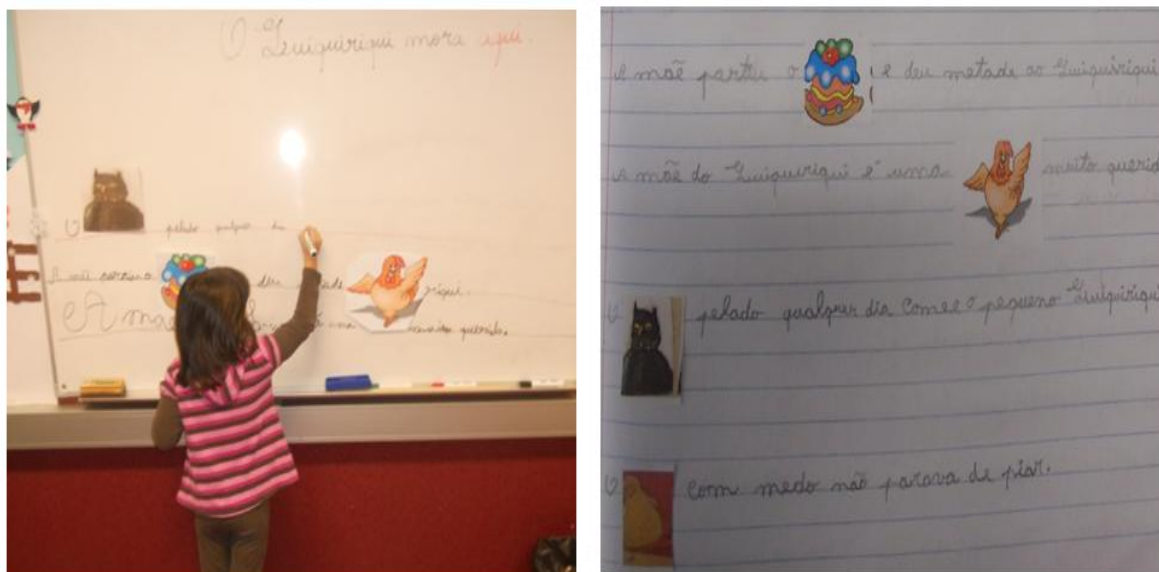 O Quiquiriqui mora aqui.
O pelado
A mãe deu metade riqui.
A mãe uma muito querida.
A mãe partiu o e deu metade ao Quiquiriqui
A mãe do Quiquiriqui é uma muito querid
O pelado qualquer dia come o pequeno Quiquiriqui
O com medo não parava de piar.